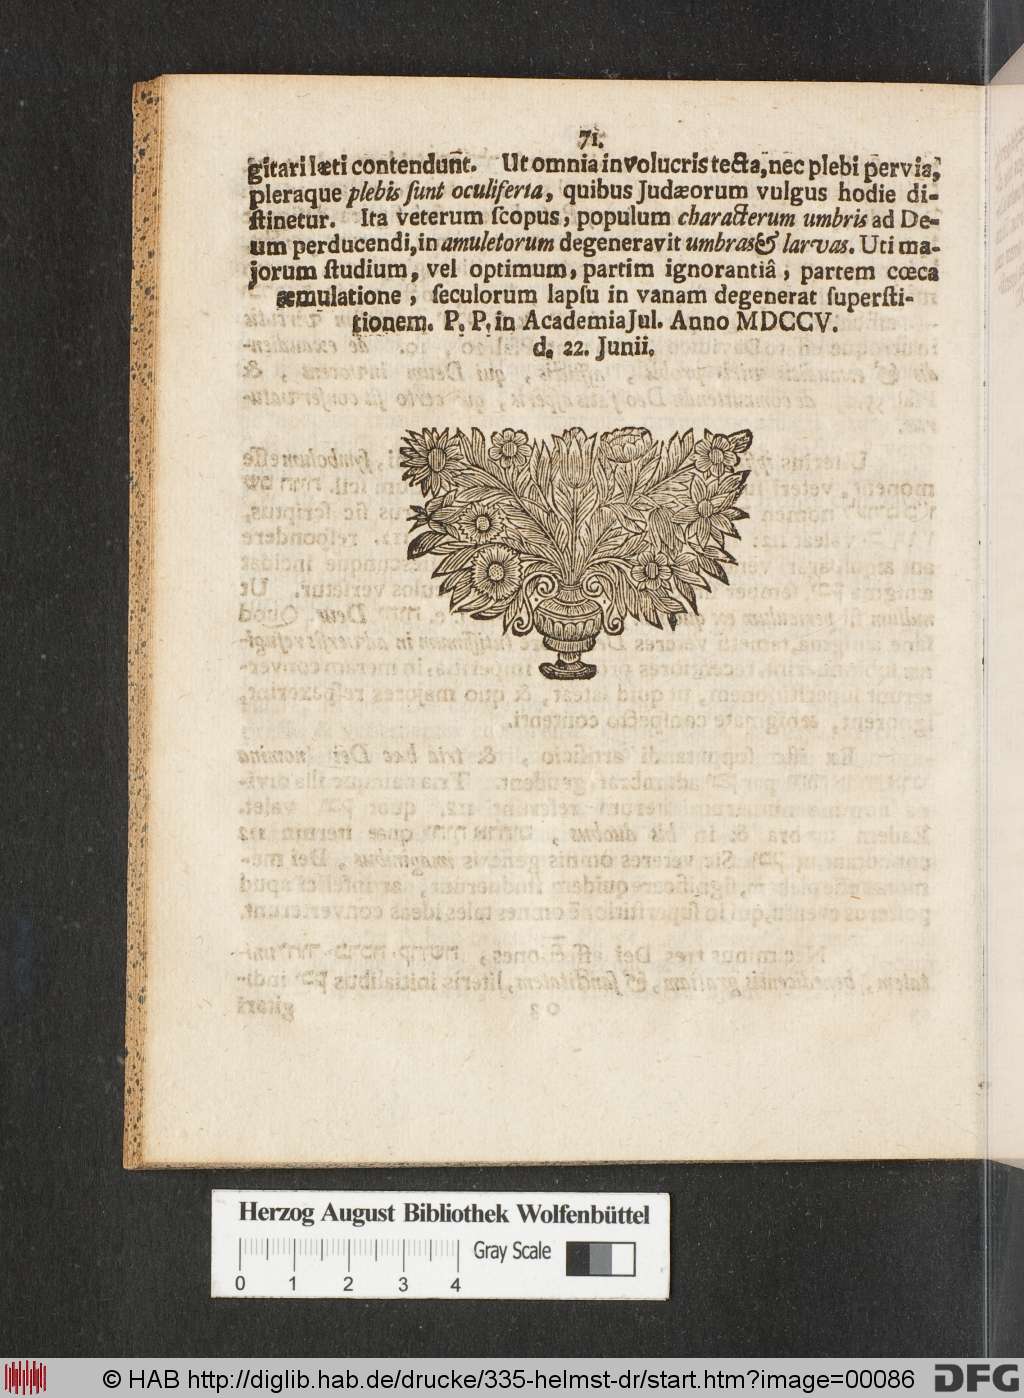 71.
gitari læti contendunt. Ut omnia involucris tecta, nec plebi pervia,
pleraque plebis ſunt oculiferta, quibus Judæorum vulgus hodie di-
ſtinetur. Ita veterum ſcopus, populum characterum umbris ad De-
um perducendi, in amuletorum degeneravit umbras & larvas. Uti ma-
jorum ſtudium, vel optimum, partim ignorantiâ, partem cœca
æmulatione, ſeculorum lapſu in vanam degenerat ſuperſti-
tionem. P. P. in Academia Jul. Anno MDCCV.
d. 22. Junii.
Herzog August Bibliothek Wolfenbüttel
Gray Scale
0 1 2 3 4
© HAB http://diglib.hab.de/drucke/335-helmst-dr/start.htm?image=00086
DFG